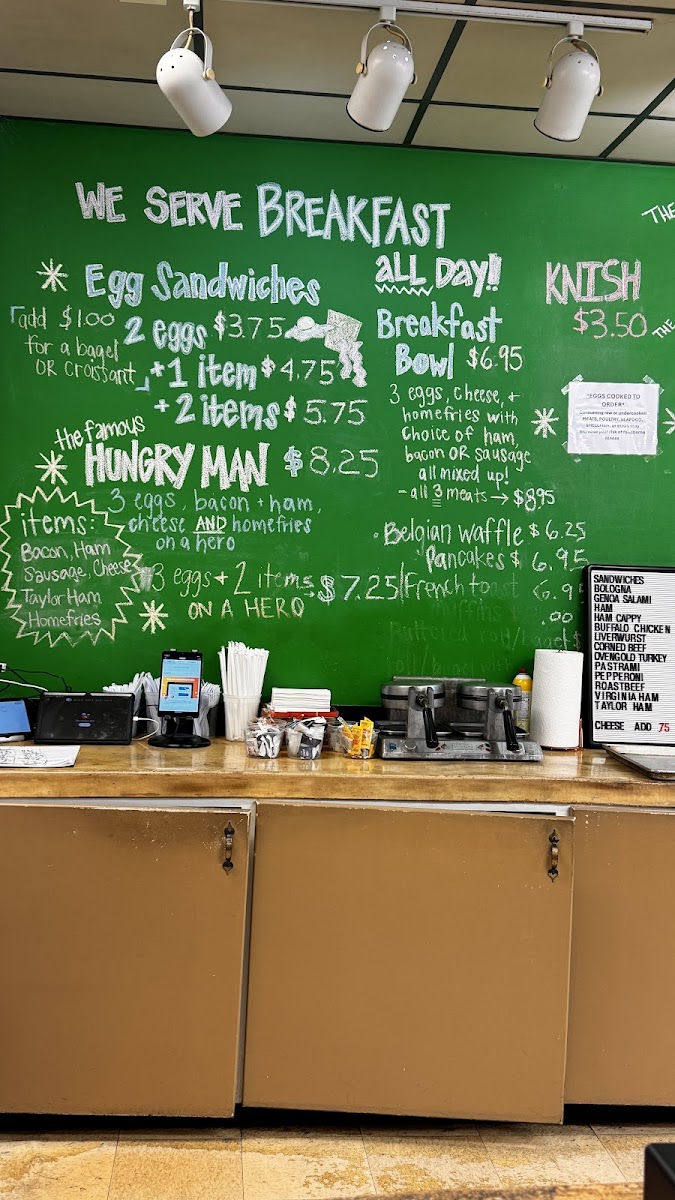 WE SERVE BREAKFAST
ALL DAY!
Egg Sandwiches
add $1.00
for a bagel
OR croistant
2 eggs $3.75
+1 item $4.75
+2 items $5.75
the famous
HUNGRY MAN $8.25
3 eggs, bacon + ham,
cheese AND homefries
on a hero
items:
Bacon, Ham
Sausage, Cheese
Taylor Ham
Homefries
3 eggs + 2 items → $7.25
ON A HERO
Breakfast
Bowl $6.95
3 eggs, cheese, +
homefries with
choice of ham,
bacon OR sausage
all mixed up!
- all 3 meats → $8.95
Belgian waffle $6.25
Pancakes $6.95
French toast 6.9
.00
KNISH
$3.50
THE
THE
*EGGS COOKED TO
ORDER*
SANDWICHES
BOLOGNA
GENOA SALAMI
HAM
HAM CAPPY
BUFFALO CHICKEN
LIVERWURST
CORNED BEEF
OVENGOLD TURKEY
PASTRAMI
PEPPERONI
ROAST BEEF
VIRGINIA HAM
TAYLOR HAM
CHEESE ADD .75